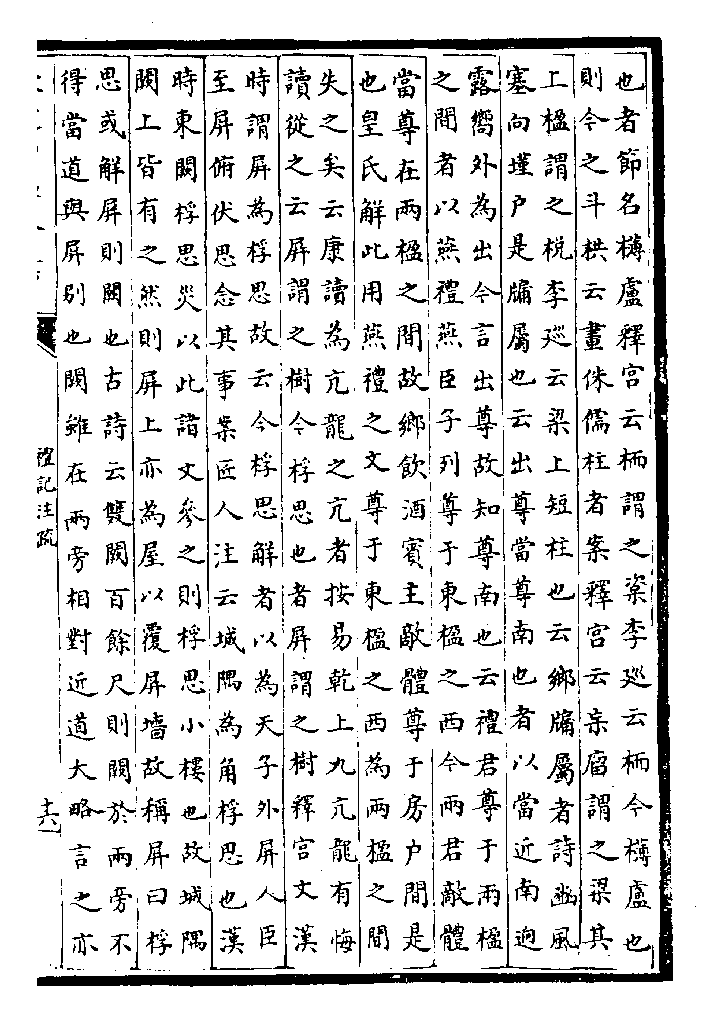 也者節名欂盧釋宮云栭謂之楶李廵云栭今欂盧也
則今之斗栱云畫侏儒柱者案釋宮云杗廇謂之梁其
上楹謂之棁李廵云梁上短柱也云鄉牖屬者詩豳風
塞向墐户是牖屬也云出尊當尊南也者以當近南迥
露嚮外為出今言出尊故知尊南也云禮君尊于兩楹
之間者以燕禮燕臣子列尊于東楹之西今兩君敵體
當尊在兩楹之間故鄉飲酒賓主敵體尊于房户間是
也皇氏解此用燕禮之文尊于東楹之西為兩楹之間
失之矣云康讀為亢龍之亢者按易乾上九亢龍有悔
讀從之云屏謂之樹今桴思也者屏謂之樹釋宮文漢
時謂屏為桴思故云今桴思解者以為天子外屏人臣
至屏俯伏思念其事案匠人注云城隅為角桴思也漢
時東闕桴思災以此諸文參之則桴思小樓也故城隅
闕上皆有之然則屏上亦為屋以覆屏墻故稱屏曰桴
思或解屏則闕也古詩云雙闕百餘尺則闕於兩旁不
得當道與屏别也闕雖在兩旁相對近道大略言之亦
禮記注疏
十六